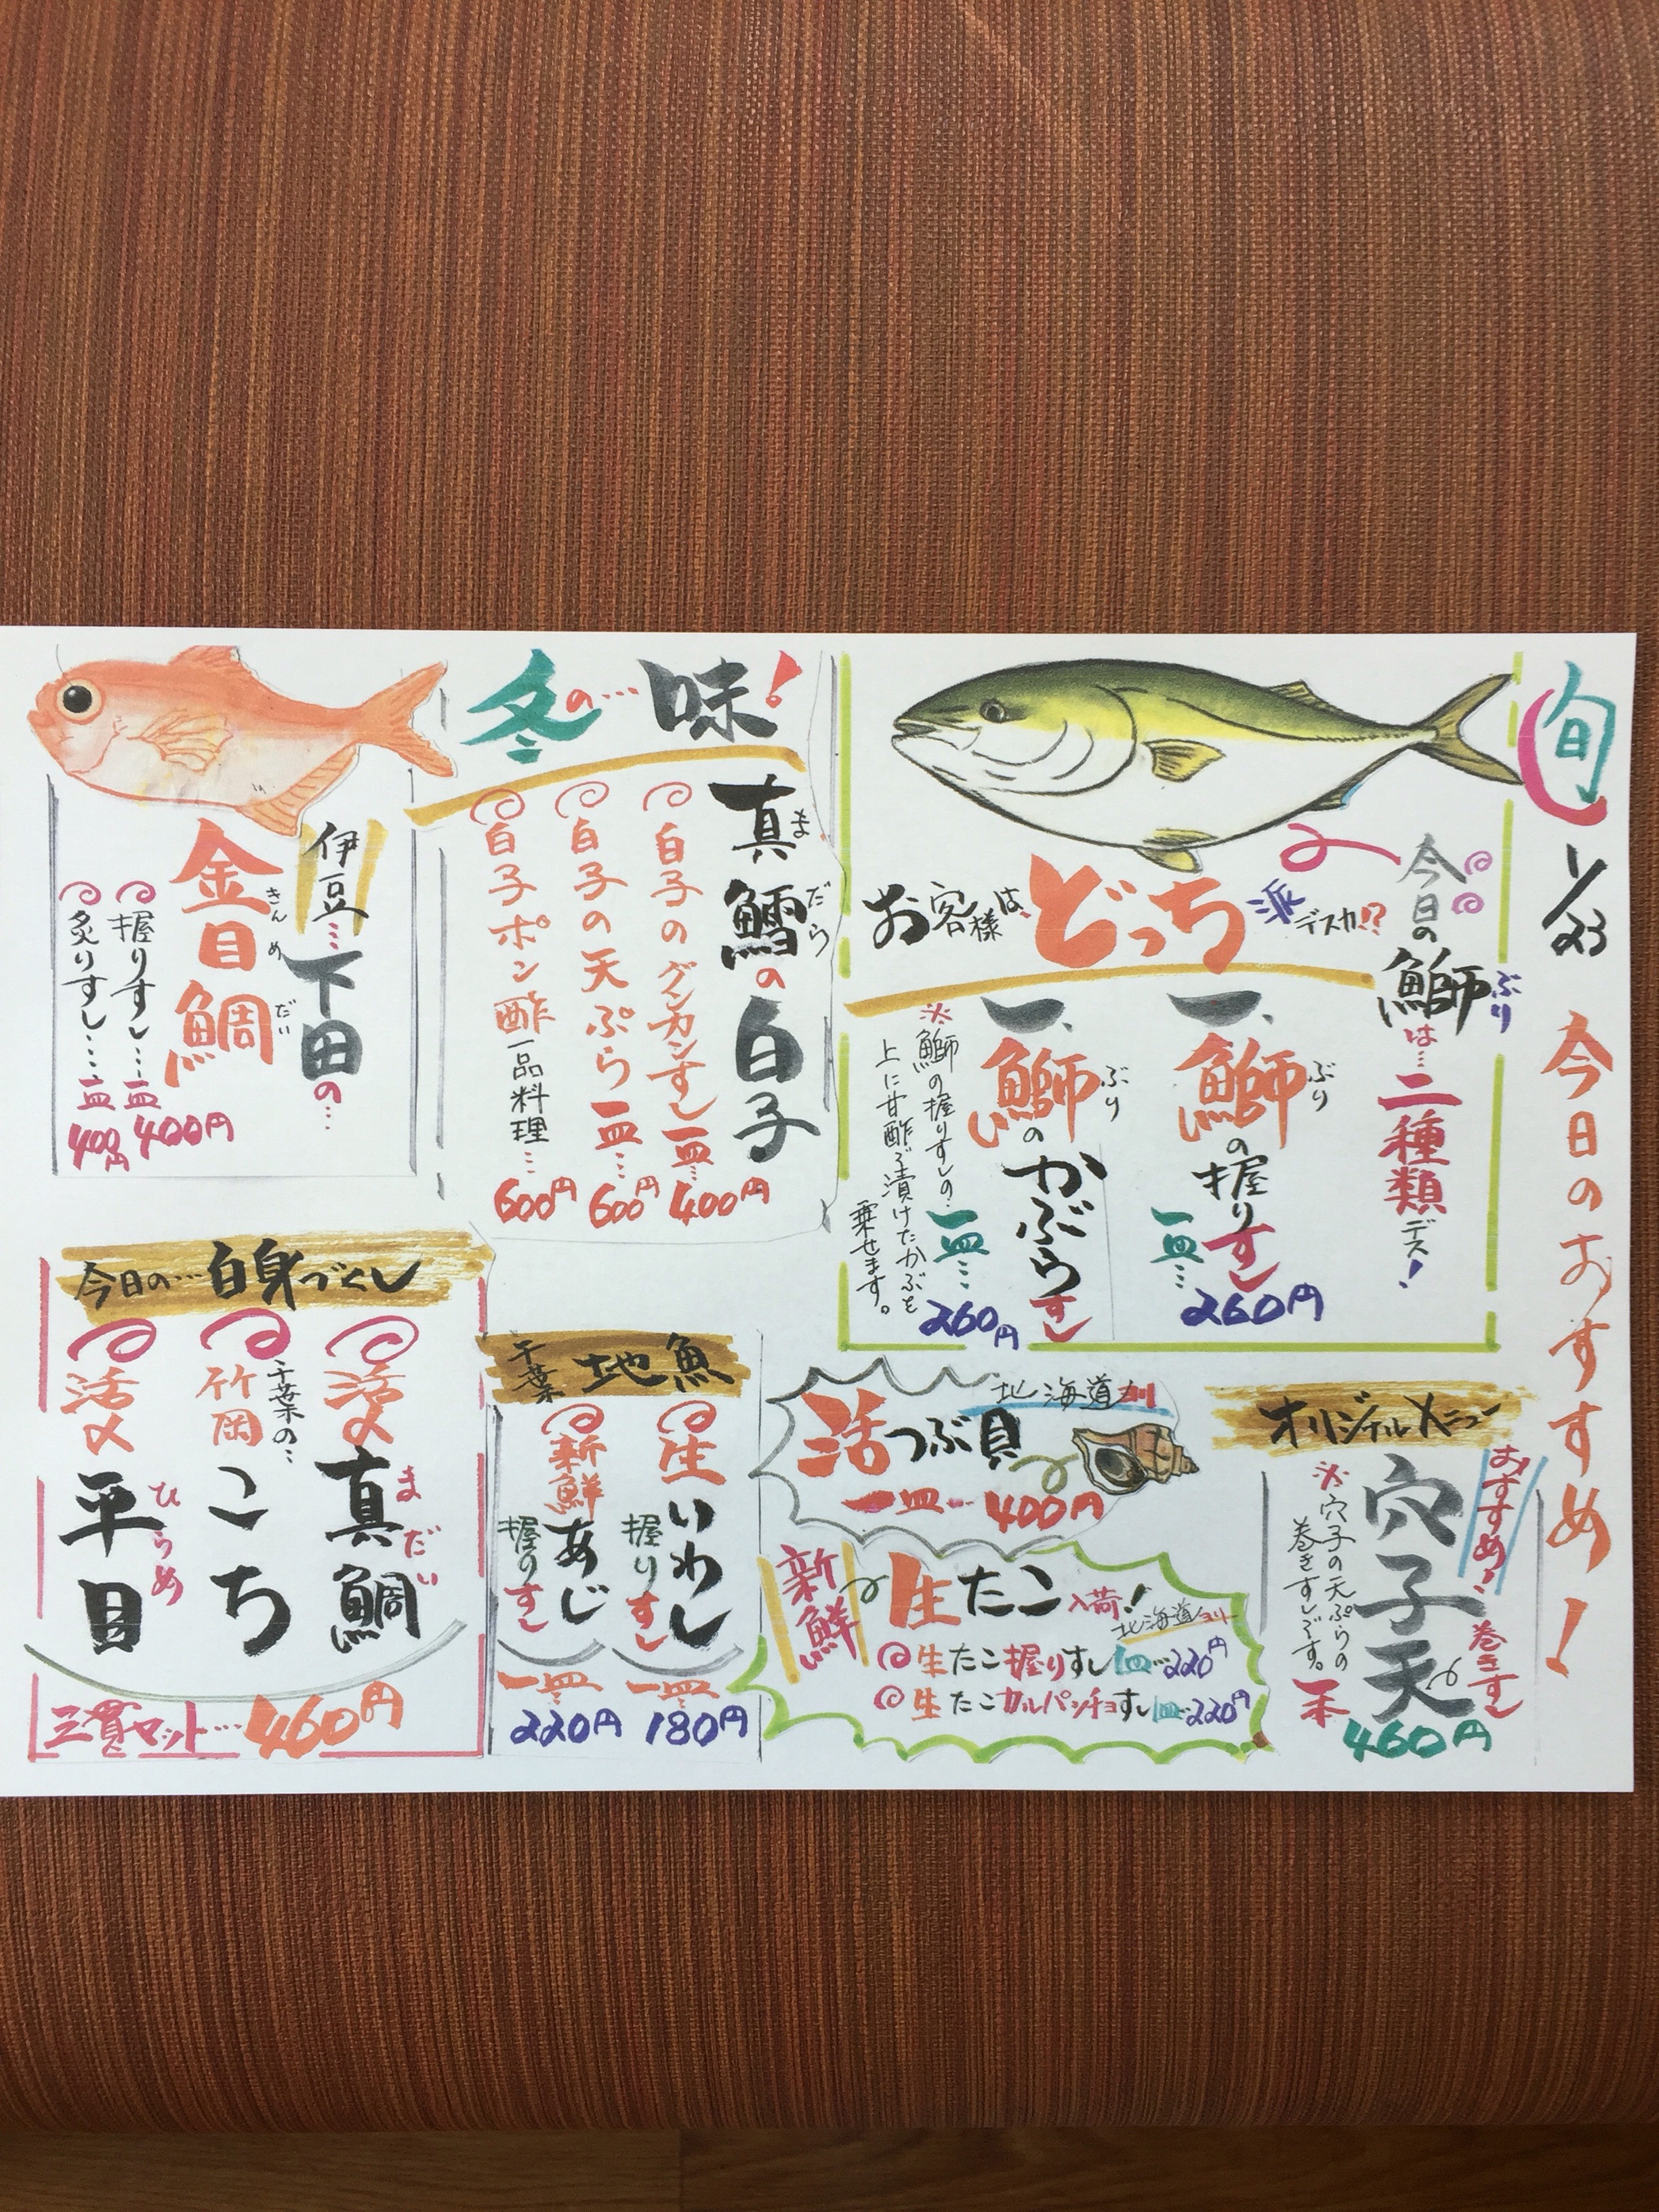 旬
1/23
今日のおすすめ!
今日の鰤は…二種類デス!
ぶり
お客様は、どっち派デスカ!?
一、鰤の握りすし
ぶり
一皿…260円
一、鰤のかぶらすし
ぶり
一皿…260円
※鰤の握りすしの
上に甘酢で漬けたかぶを
乗せます。
冬の…味!
真鱈の白子
まだら
白子のグンカンすし一皿…400円
白子の天ぷら一皿…600円
白子ポン酢一品料理…600円
伊豆…下田の…
金目鯛
きんめだい
握りすし…一皿400円
炙りすし…一皿400円
オリジナルメニュー
おすすめ!
巻きすし
穴子天
※穴子の天ぷらの
巻きすしです。
一本460円
北海道
活つぶ貝
一皿…400円
新鮮
生たこ入荷!
北海道ヨリ
生たこ握りすし一皿…220円
生たこカルパッチョすし一皿…220円
千葉地魚
生いわし
握りすし
一皿…180円
新鮮あじ
握りすし
一皿…220円
今日の…白身づくし
活〆真鯛
まだい
千葉の…
竹岡こち
活〆平目
ひらめ
三貫セット…460円